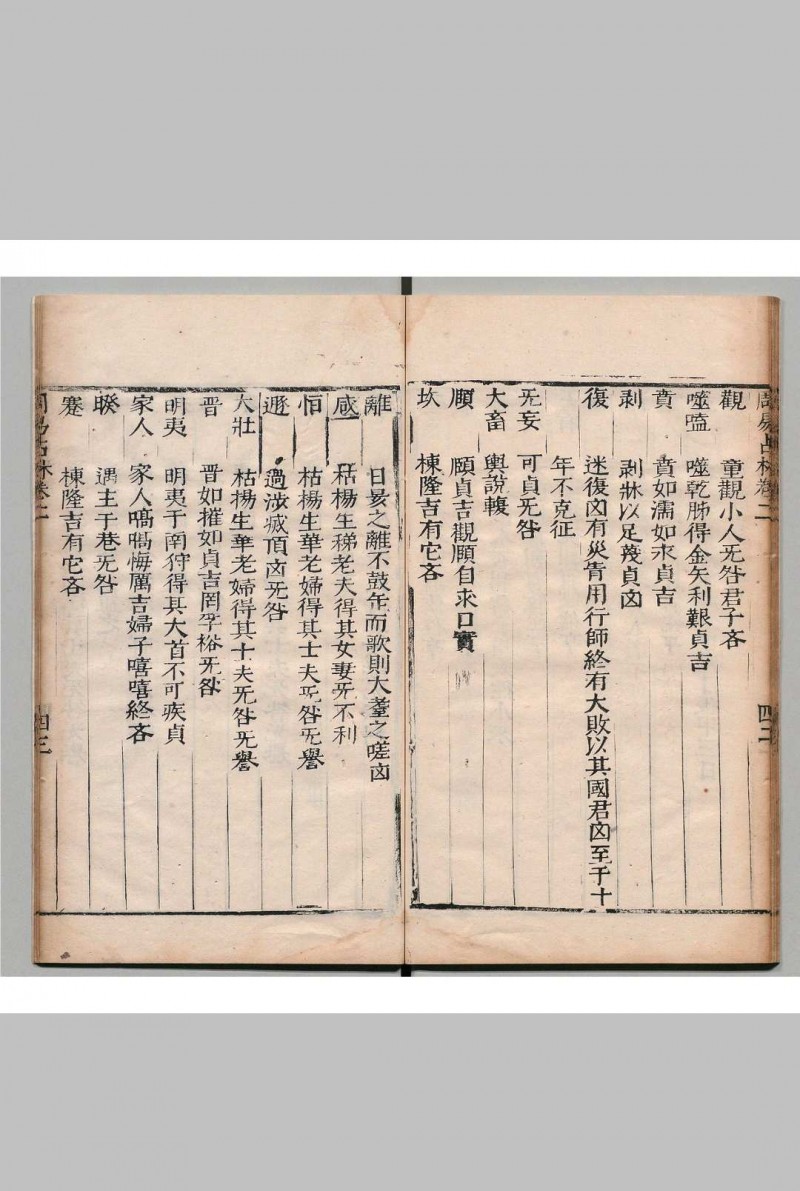 周易占林卷二 四二
觀 童觀小人旡咎君子吝
噬嗑 噬乾胏得金矢利艱貞吉
賁 賁如濡如永貞吉
剥 剥牀以足蔑貞凶
復 迷復凶有災眚用行師終有大敗以其國君凶至于十
年不克征
旡妄 可貞旡咎
大畜 輿說輹
頤 頤貞吉觀頤自求口實
坎 棟隆吉有它吝
離 日昃之離不鼓缶而歌則大耋之嗟凶
咸 枯楊生稊老夫得其女妻旡不利
恒 枯楊生華老婦得其士夫旡咎旡譽
遯 過涉滅頂凶旡咎
大壯 枯楊生華老婦得其士夫旡咎旡譽
晋 晋如摧如貞吉罔孚裕旡咎
明夷 明夷于南狩得其大首不可疾貞
家人 家人嗃嗃悔厲吉婦子嘻嘻終吝
睽 遇主于巷旡咎
蹇 棟隆吉有它吝
周易占林卷二 四三